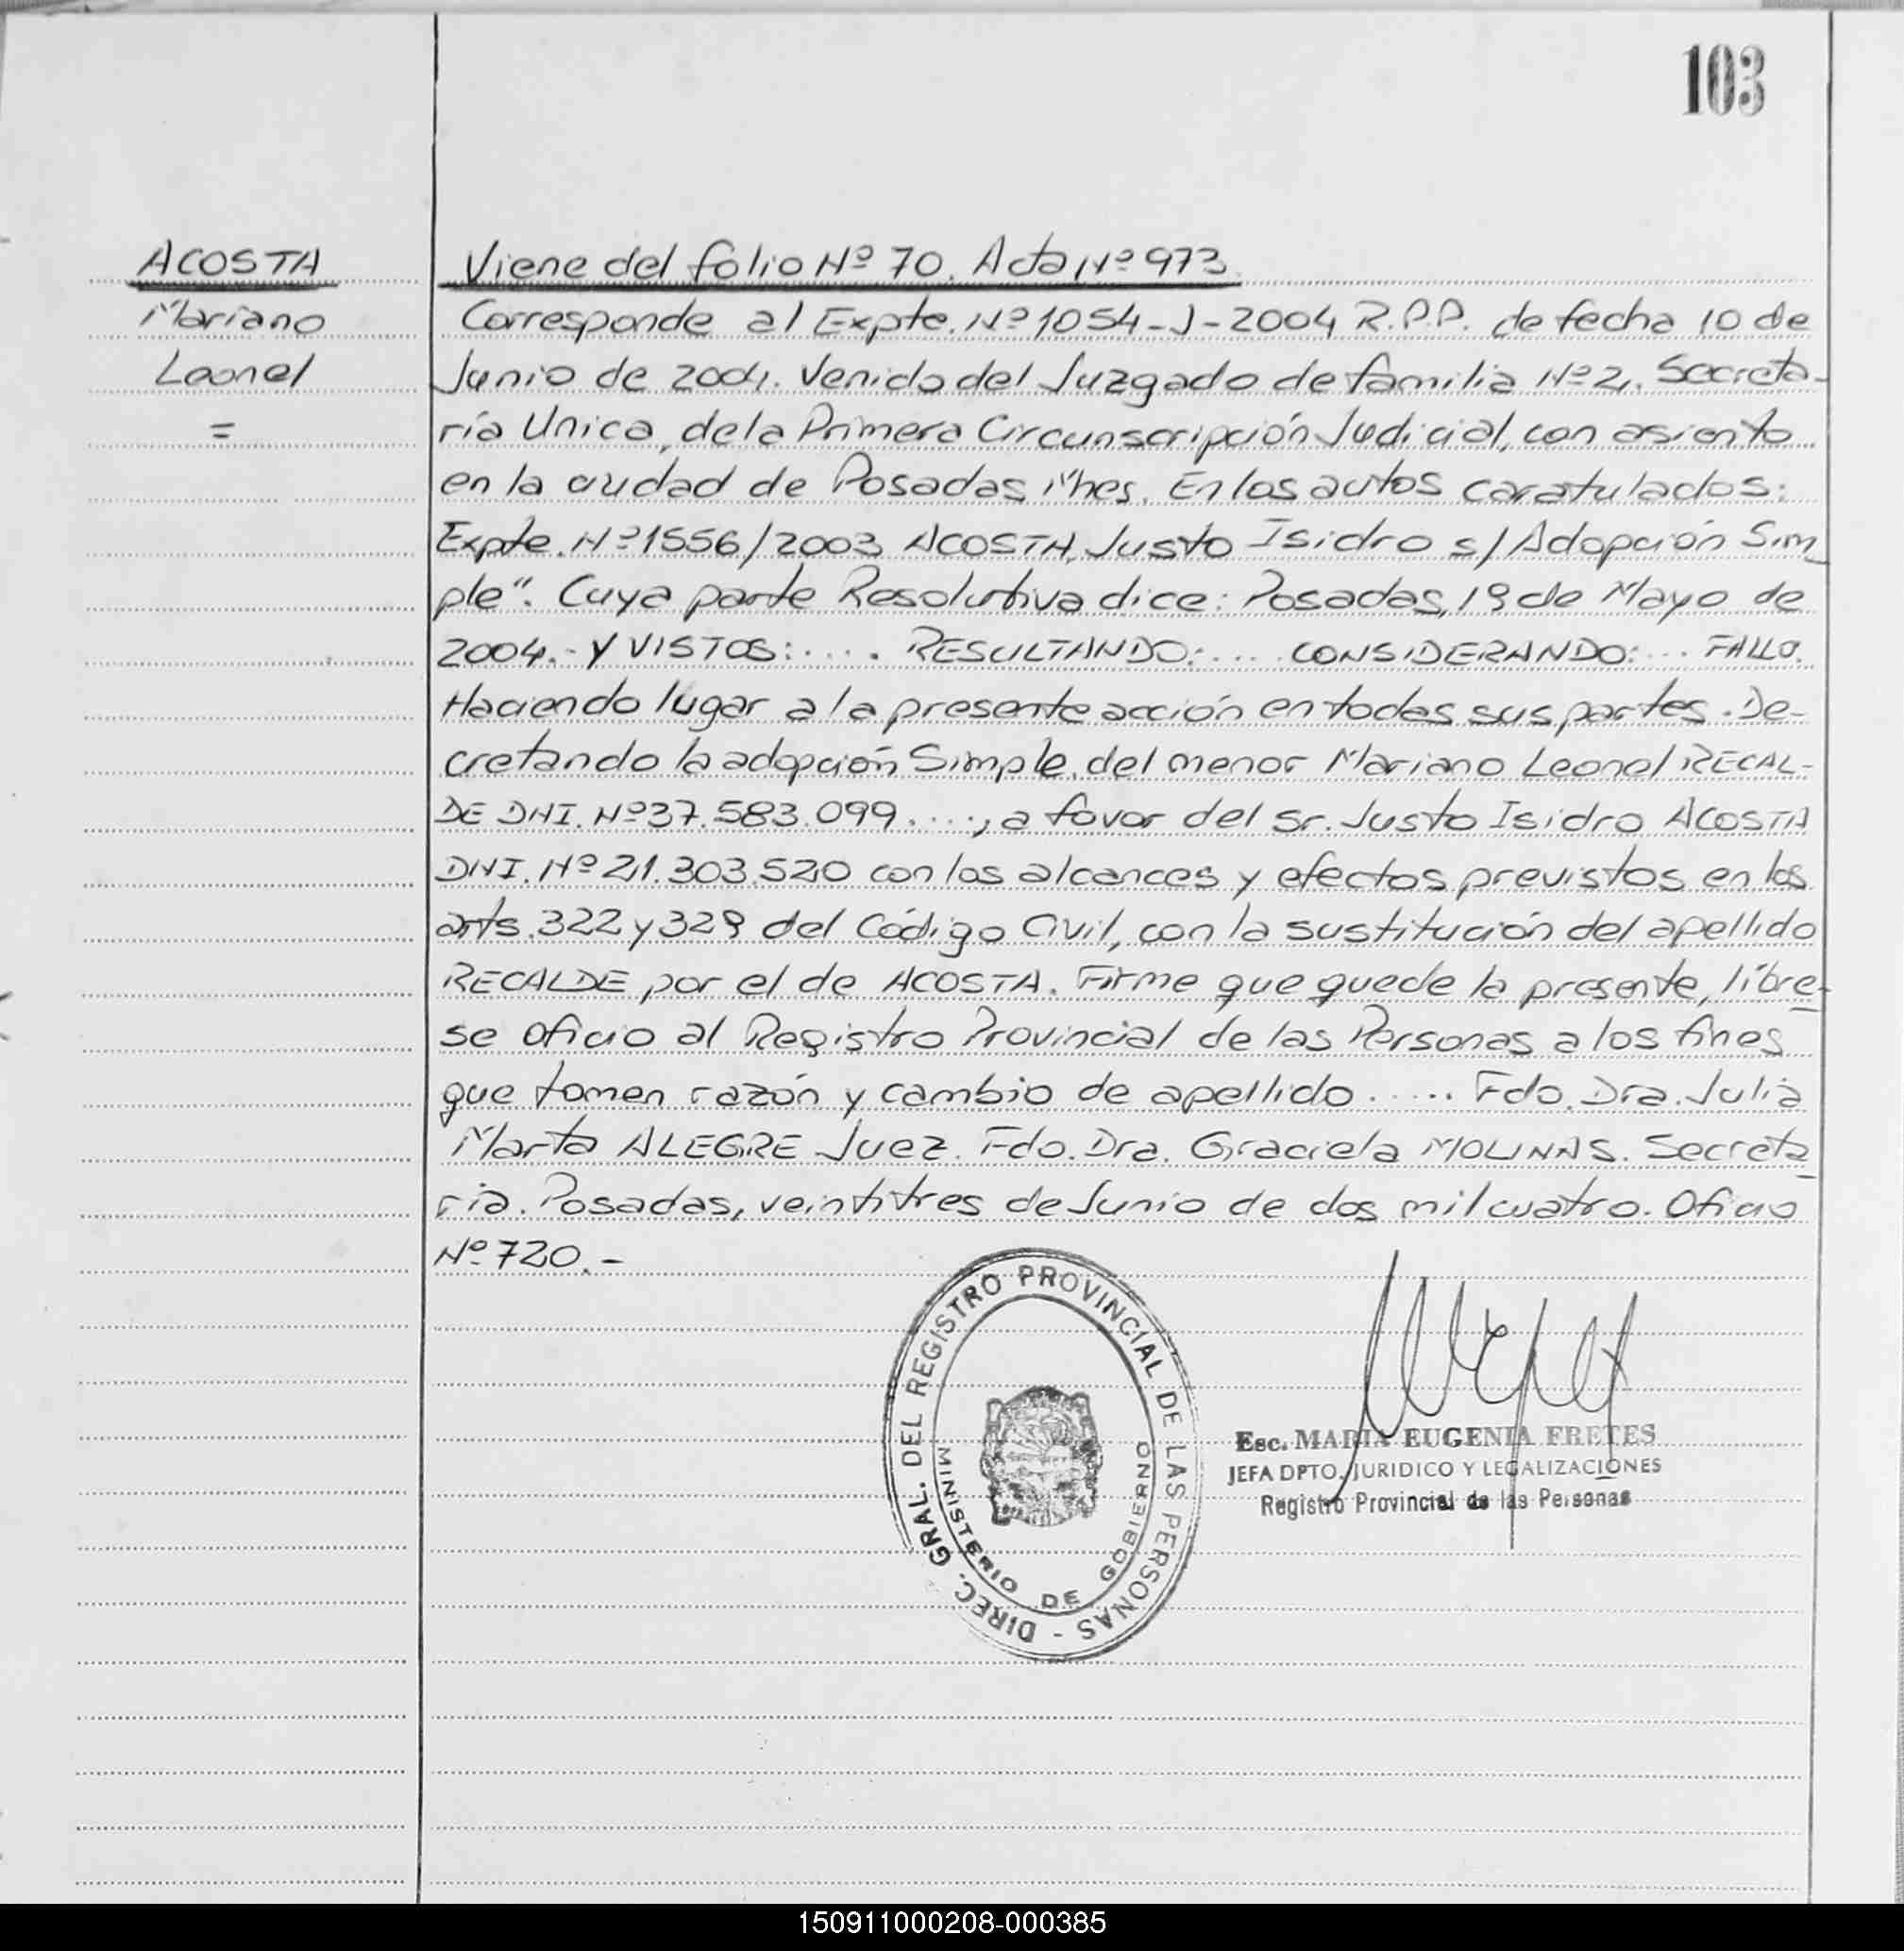 103
ACOSTA
Mariano
Leonel
=
Viene del folio Nº 70. Acta Nº 973.
Corresponde al Expte. Nº 1054-J-2004 R.P.P. de fecha 10 de
Junio de 2004. Venido del Juzgado de familia Nº 2, Secreta-
ría Unica, de la Primera Circunscripción Judicial, con asiento
en la ciudad de Posadas Mnes. En los autos caratulados:
Expte. Nº 1556/2003 ACOSTA, Justo Isidro s/ Adopción Sim_
ple". Cuya parte Resolutiva dice: Posadas, 19 de Mayo de
2004.- Y VISTOS:.... RESULTANDO:... CONSIDERANDO:... FALLO.
Haciendo lugar a la presente acción en todas sus partes. De-
cretando la adopción Simple, del menor Mariano Leonel RECAL-
DE DNI. Nº 37.583.099...., a favor del Sr. Justo Isidro ACOSTA
DNI. Nº 21.303.520 con los alcances y efectos previstos en los
arts. 322 y 329 del Código Civil, con la sustitución del apellido
RECALDE por el de ACOSTA. Firme que quede la presente, líbre-
se oficio al Registro Provincial de las Personas a los fines
que tomen razón y cambio de apellido..... Fdo. Dra. Julia
Marta ALEGRE Juez. Fdo. Dra. Graciela MOLINAS. Secreta_
ria. Posadas, veintitres de Junio de dos mil cuatro. Oficio
Nº 720.-
DIREC. GRAL. DEL REGISTRO PROVINCIAL DE LAS PERSONAS -
MINISTERIO DE GOBIERNO
Esc. MARIA EUGENIA FRETES
JEFA DPTO. JURIDICO Y LEGALIZACIONES
Registro Provincial de las Personas
150911000208-000385